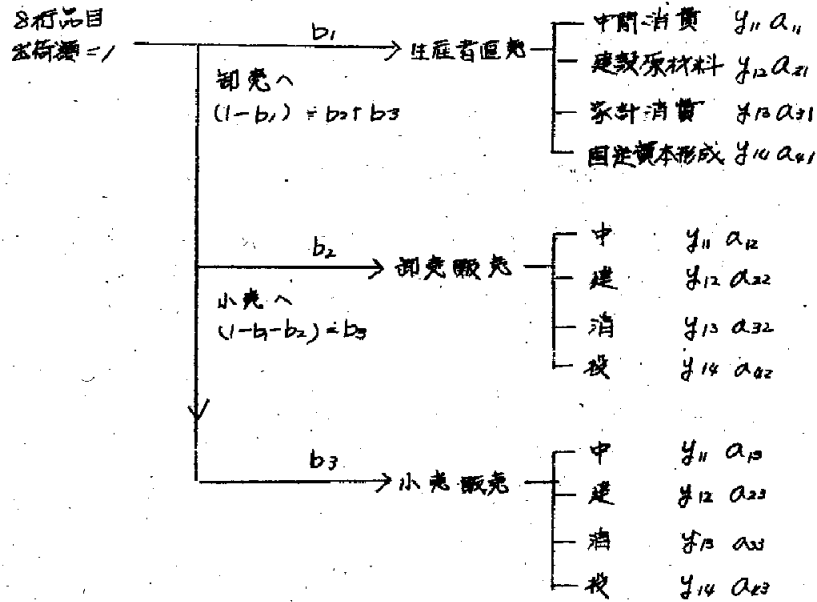 8桁品目
出荷額=1
b₁
生産者直売
中間消費 y₁₁ a₁₁
建設原材料 y₁₂ a₂₁
家計消費 y₁₃ a₃₁
固定資本形成 y₁₄ a₄₁
卸売へ
(1-b₁) = b₂+b₃
b₂
卸売販売
中 y₁₁ a₁₂
建 y₁₂ a₂₂
消 y₁₃ a₃₂
投 y₁₄ a₄₂
小売へ
(1-b₁-b₂) = b₃
b₃
小売販売
中 y₁₁ a₁₃
建 y₁₂ a₂₃
消 y₁₃ a₃₃
投 y₁₄ a₄₃